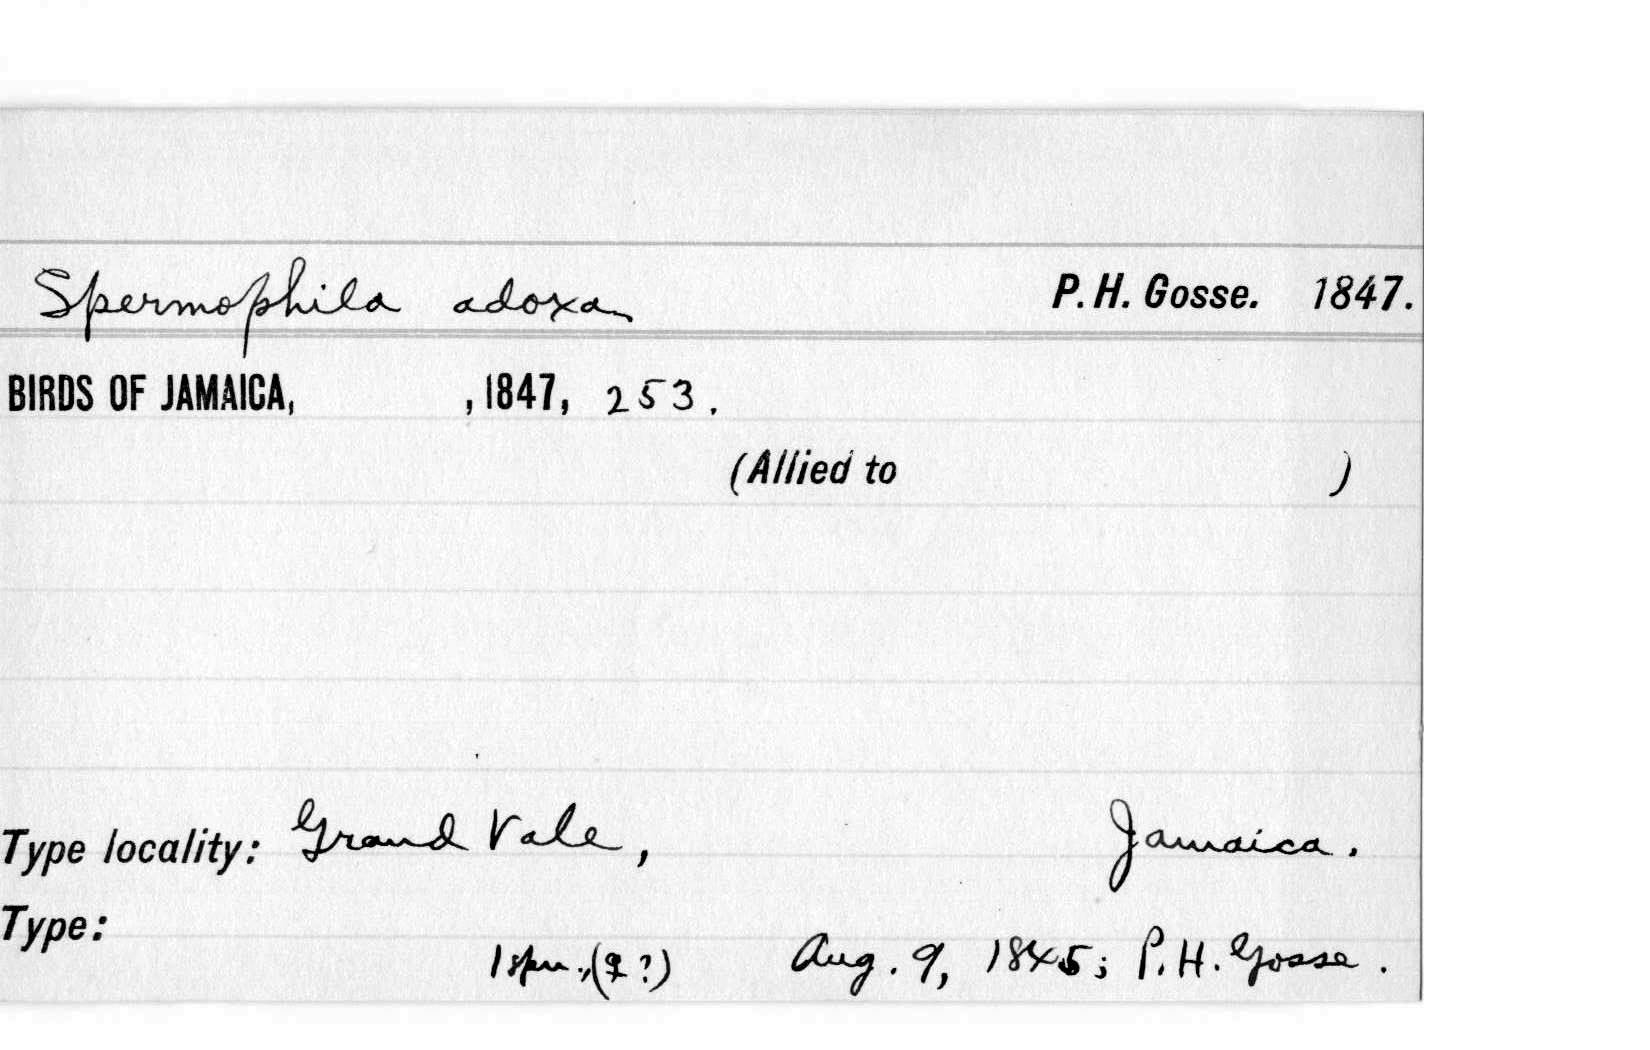 Spermophila adoxa P. H. Gosse. 1847.
BIRDS OF JAMAICA, , 1847, 253.
(Allied to )
Type locality: Grand Vale, Jamaica.
Type:
1 spm., (♀?) Aug. 9, 1845; P. H. Gosse.